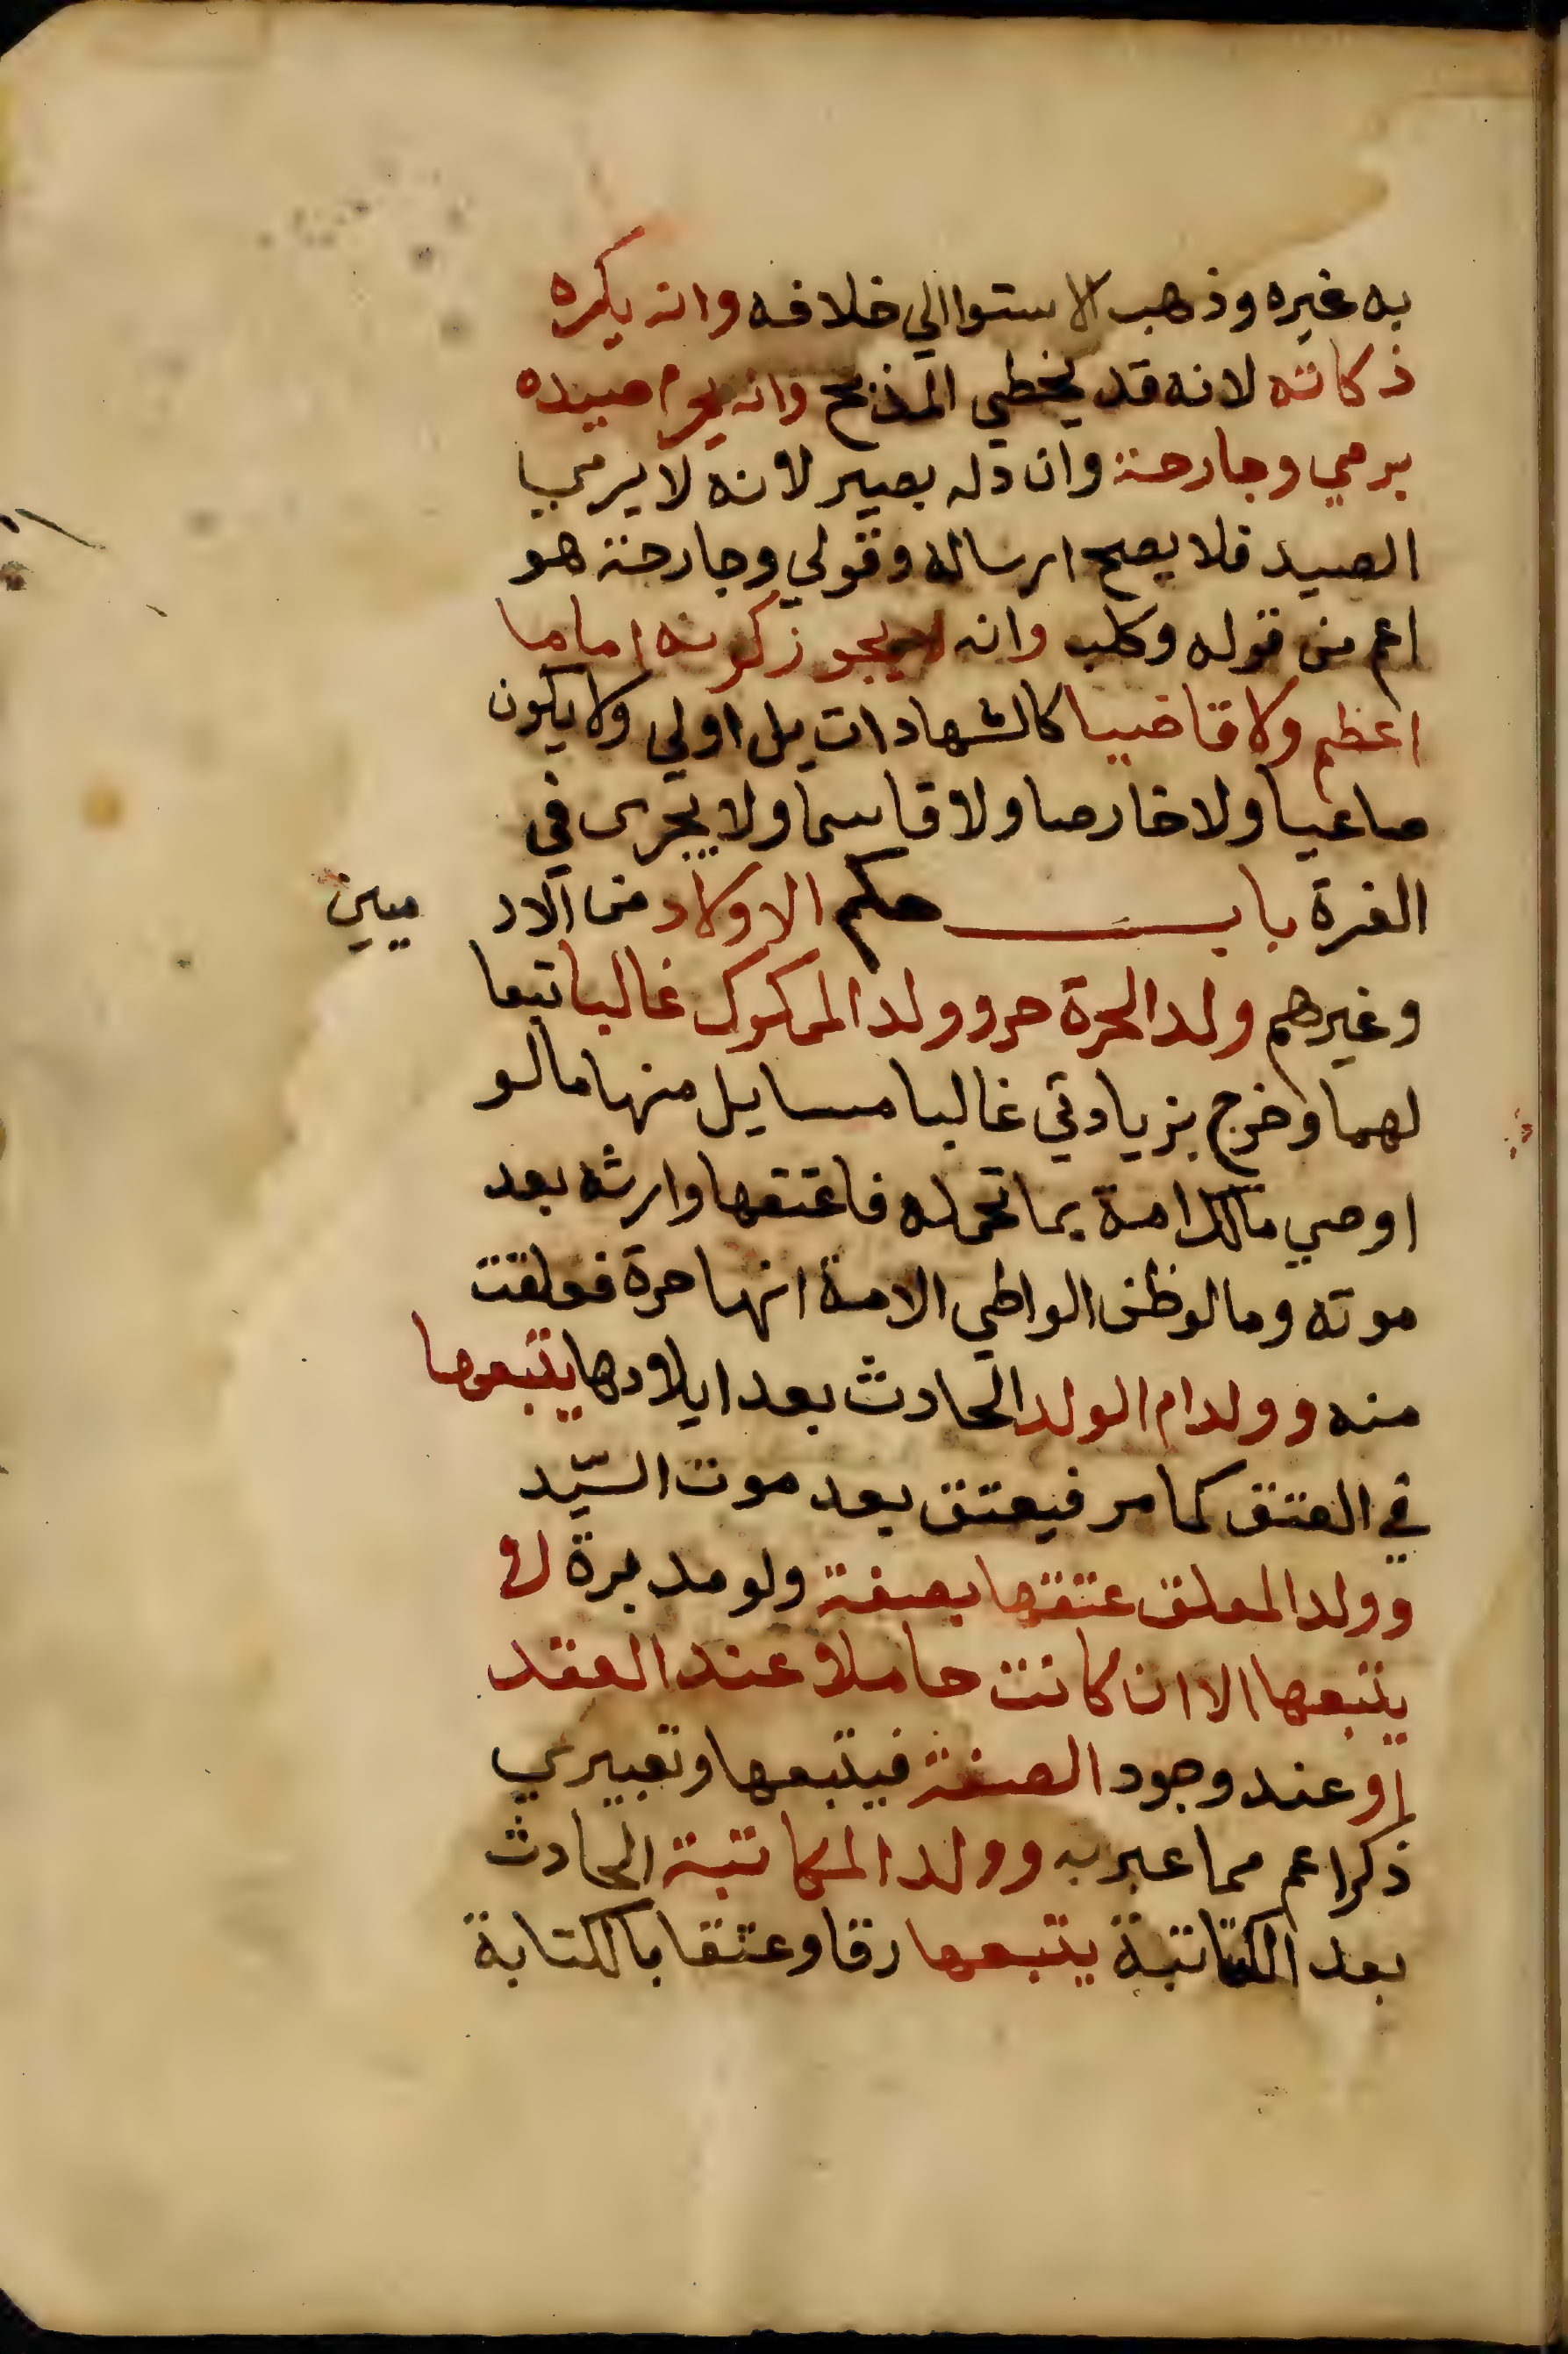 به غيره وذهب الاستوا الي خلافه وانه يكره
ذكاته لانه قد يخطي المذبح وانه يحرم صيده
برمي وجارحة وان دله بصير لانه لا يرمي
الصيد فلا يصح ارساله وقولي وجارحة هو
اعم من قوله وكلب وانه لا يجوز كونه اماما
اعظم ولا قاضيا كالشهادات بل اولي ولا يكون
ساعيا ولا خارصا ولا قاسما ولا يجزى في
الغرة باب حكم الاولاد من الاد ميين
وغيرهم ولد الحرة حر وولد المملوك غالبا تبعا
لهما وخرج بزيادتي غالبا مسايل منها ما لو
اوصي مالك امة بما تحمله فاعتقها وارثه بعد
موته وما لو ظن الواطي الامة انها حرة فعلقت
منه وولد ام الولد الحادث بعد ايلادها يتبعها
في العتق كما مر فيعتق بعد موت السيّد
وولد المعلق عتقها بصفة ولو مدبرة لا
يتبعها الا ان كانت حاملا عند العقد
او عند وجود الصفة فيتبعها وتعبيري
ذكر اعم مما عبر به وولد المكاتبة الحادث
بعد الكتابة يتبعها رقا وعتقا بالكتابة